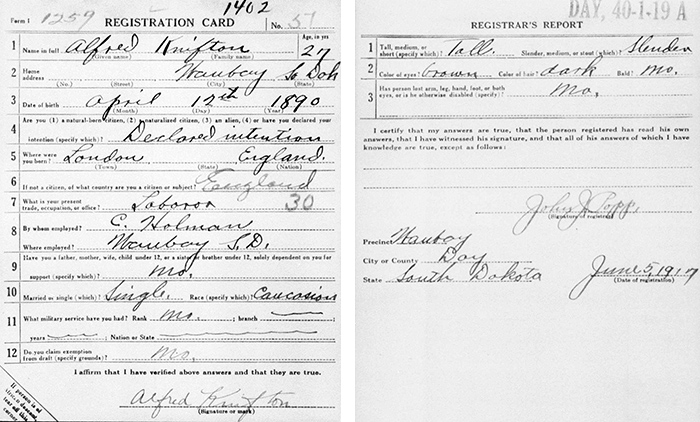 Form 1 1259 REGISTRATION CARD 1402 No. 51
1 Name in full Alfred Knifton Age, in yrs 27
(Given name) (Family name)
2 Home address Waubay So Dak
(No.) (Street) (City) (State)
3 Date of birth April 12th 1890
(Month) (Day) (Year)
4 Are you (1) a natural-born citizen, (2) a naturalized citizen, (3) an alien, (4) or have you declared your
intention (specify which)? Declared intention
5 Where were you born? London England.
(Town) (State) (Nation)
6 If not a citizen, of what country are you a citizen or subject? England
7 What is your present trade, occupation, or office? Laboror 30
8 By whom employed? C. Holman
Where employed? Waubay S.D.
9 Have you a father, mother, wife, child under 12, or a sister or brother under 12, solely dependent on you for
support (specify which)? No.
10 Married or single (which)? Single. Race (specify which)? Caucasion
11 What military service have you had? Rank No. ; branch
years ; Nation or State
12 Do you claim exemption from draft (specify grounds)? No.
I affirm that I have verified above answers and that they are true.
Alfred Knifton
(Signature or mark)
If person is of
African descent,
tear off this
corner
DAY, 40-1-19 A
REGISTRAR'S REPORT
1 Tall, medium, or short (specify which)? Tall. Slender, medium, or stout (which)? Slender
2 Color of eyes? brown Color of hair? dark Bald? No.
3 Has person lost arm, leg, hand, foot, or both eyes, or is he otherwise disabled (specify)? No.
I certify that my answers are true, that the person registered has read his own
answers, that I have witnessed his signature, and that all of his answers of which I have
knowledge are true, except as follows:
John J Popp.
(Signature of registrar)
Precinct Waubay
City or County Day
State South Dakota June 5, 1917
(Date of registration)